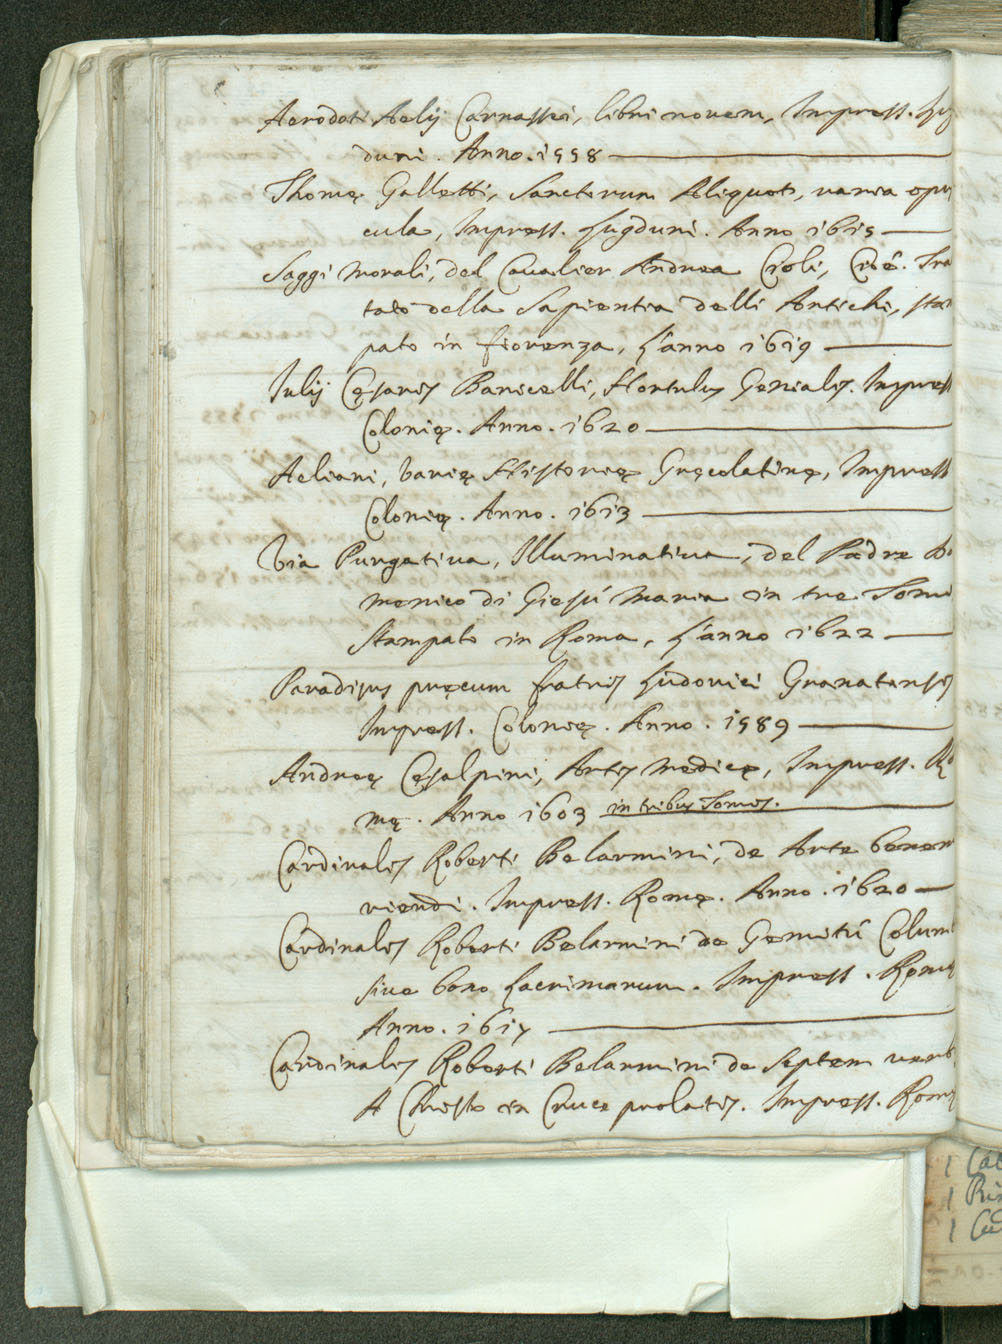 Aerodoti Aelij Carnassei, libri novem, Impress. Lug
duni. Anno. 1558
Thomę Galletti, Sanctorum Aliquot, varia opus
cula, Impress. Lugduni. Anno 1615
Saggi morali, del Cavalier Andrea Cioli, Cioé. Tra
tato della Sapientia delli Antichi, stam
pato in fiorenza, L'anno 1619
Iulij Cęsaris Baricelli, Hortulus Genialis. Impress
Colonię. Anno. 1620
Aeliani, Varię Historię Gręcolatinę, Impress
Colonię. Anno. 1613
Via Purgativa, Illuminativa, del Padre Do
menico di Giesù Maria in tre Tomi
Stampato in Roma, L'anno 1622
Paradisus precum fratris Ludovici Granatensis
Impress. Colonię. Anno. 1589
Andreę Cęsalpini, Artis medicę, Impress. Ro
mę. Anno 1603 in tribus Tomis.
Cardinalis Roberti Belarmini, de Arte benem
riendi. Impress. Romę. Anno. 1620
Cardinalis Roberti Belarmini de Gemitú Colum
sive bono Lacrimarum. Impress. Romę
Anno. 1617
Cardinalis Roberti Belarmini de septem verb
A Christo in Cruce prolatis. Impress. Romę